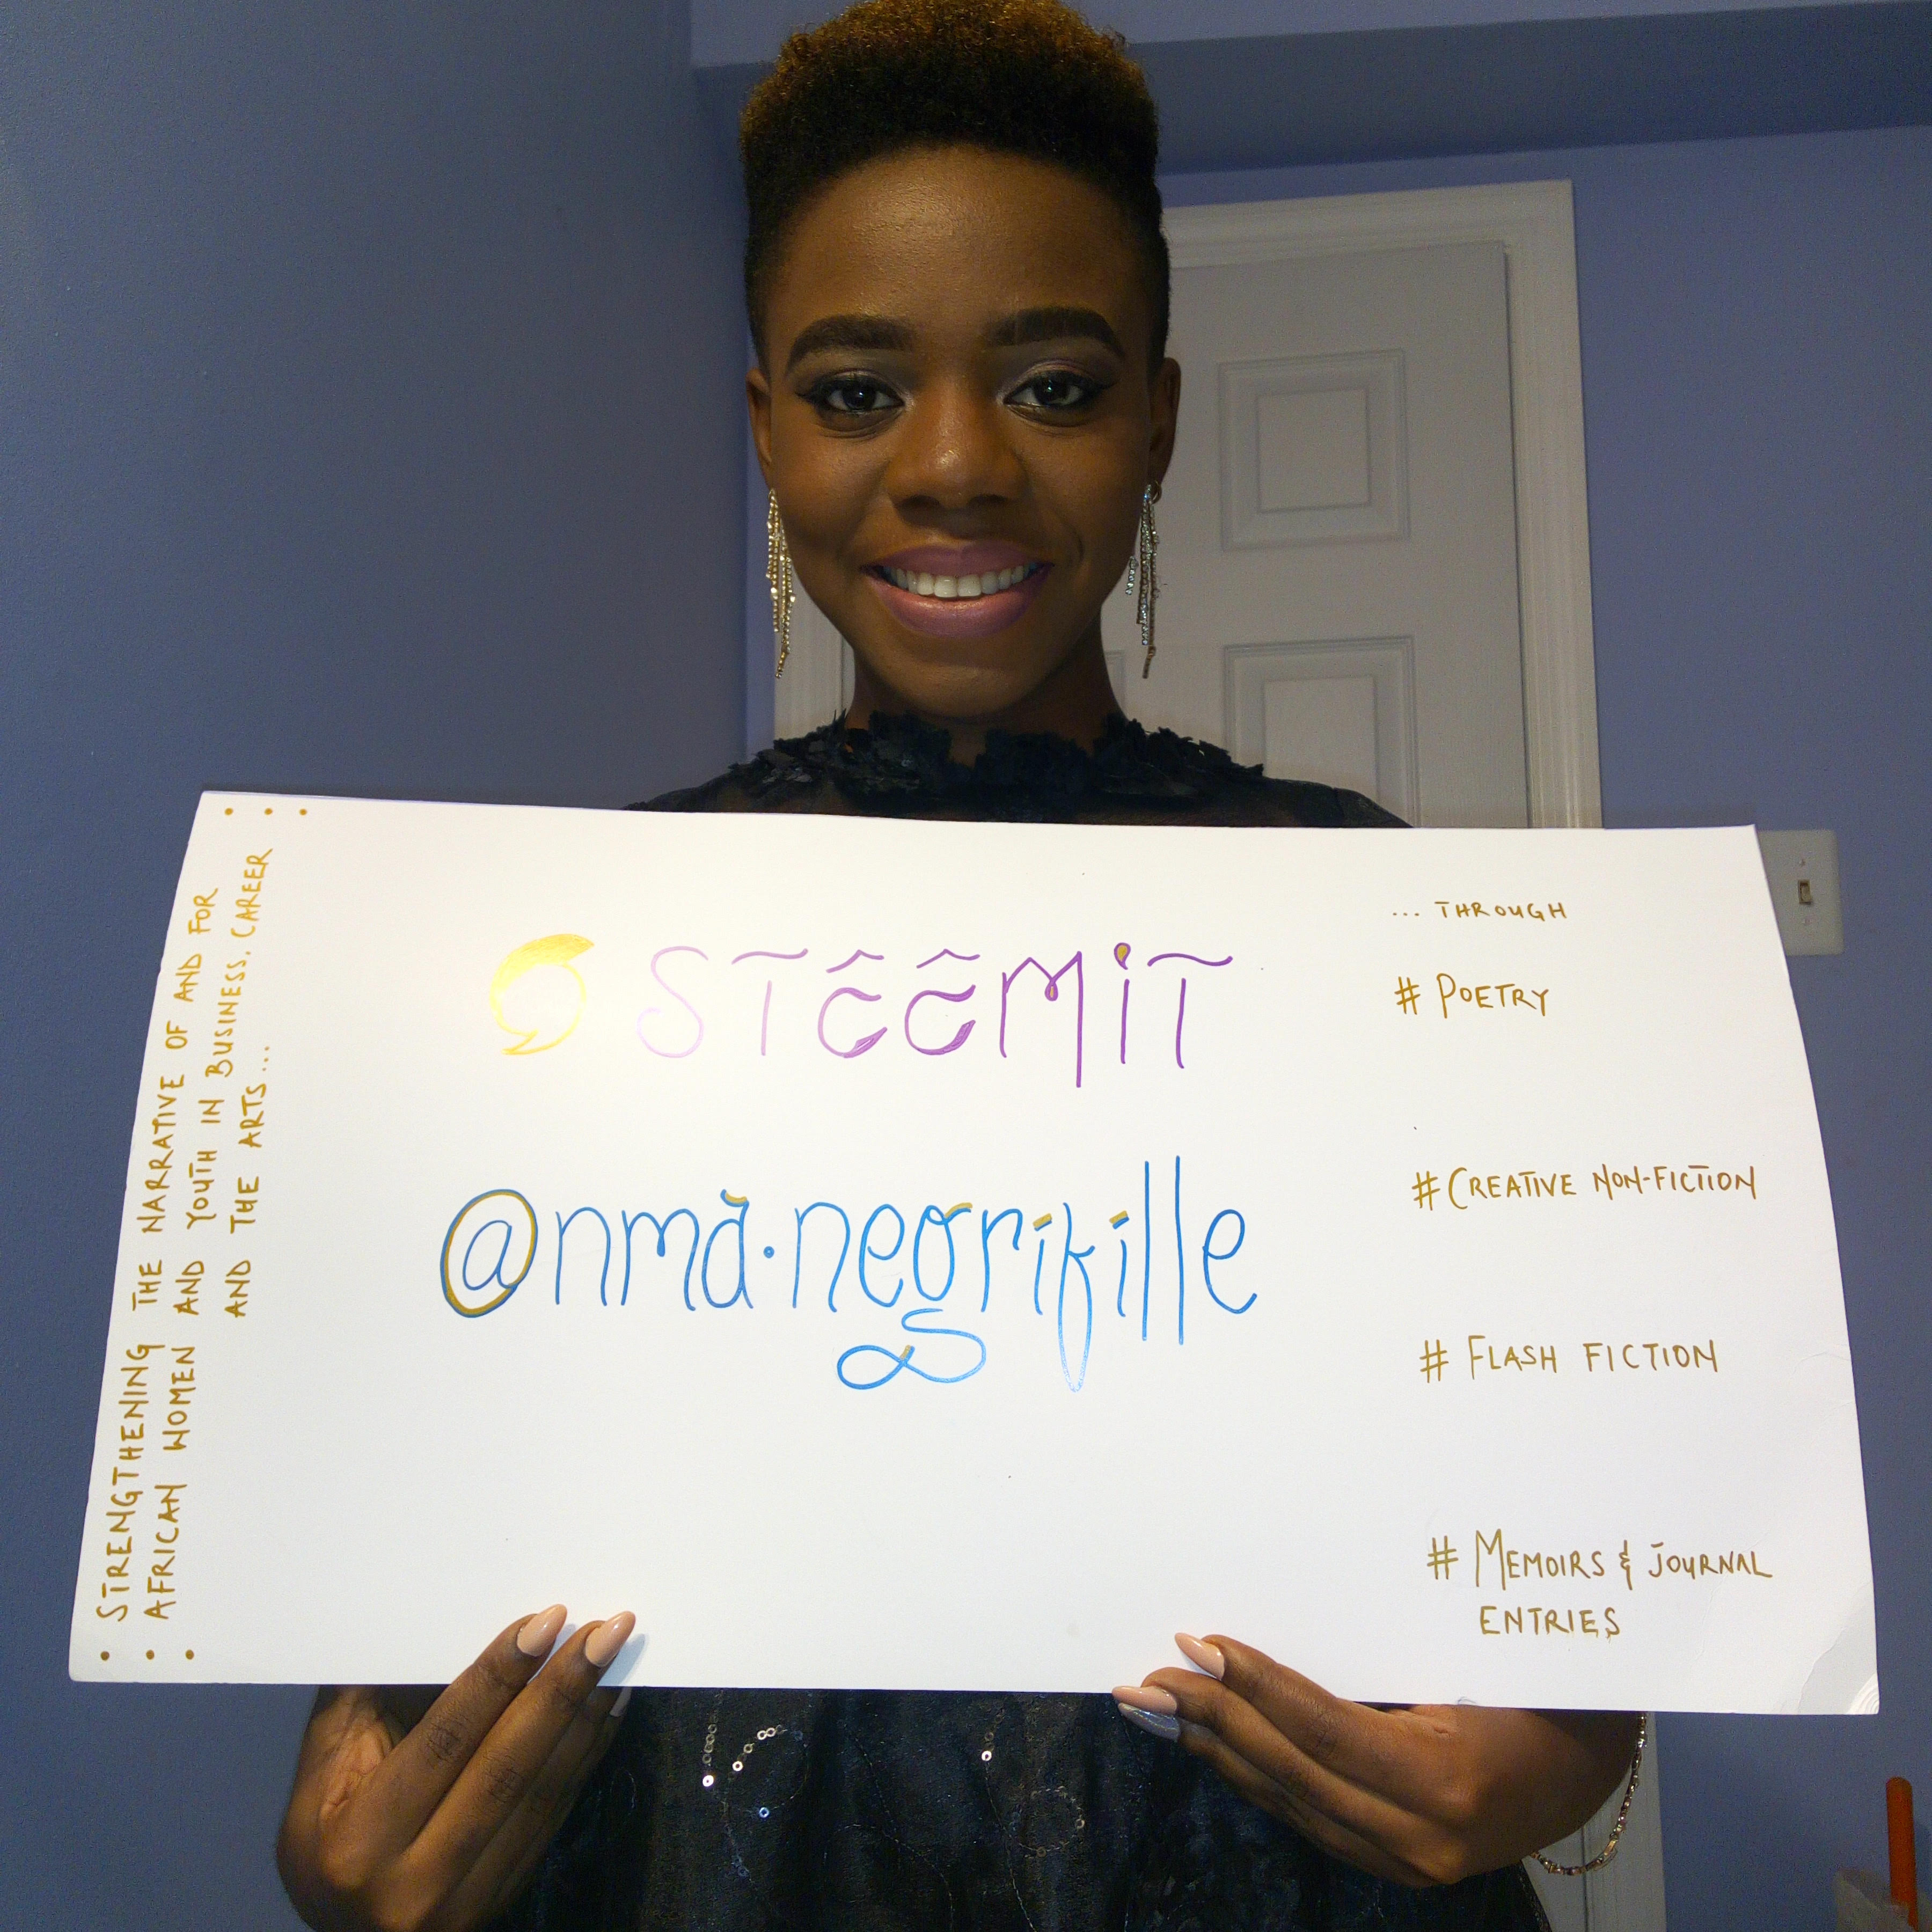 STRENGTHENING THE NARRATIVE OF AND FOR
AFRICAN WOMEN AND YOUTH IN BUSINESS, CAREER
AND THE ARTS...
STEEMIT
@nma.negrifille
... THROUGH
# POETRY
# CREATIVE NON-FICTION
# FLASH FICTION
# MEMOIRS & JOURNAL
ENTRIES